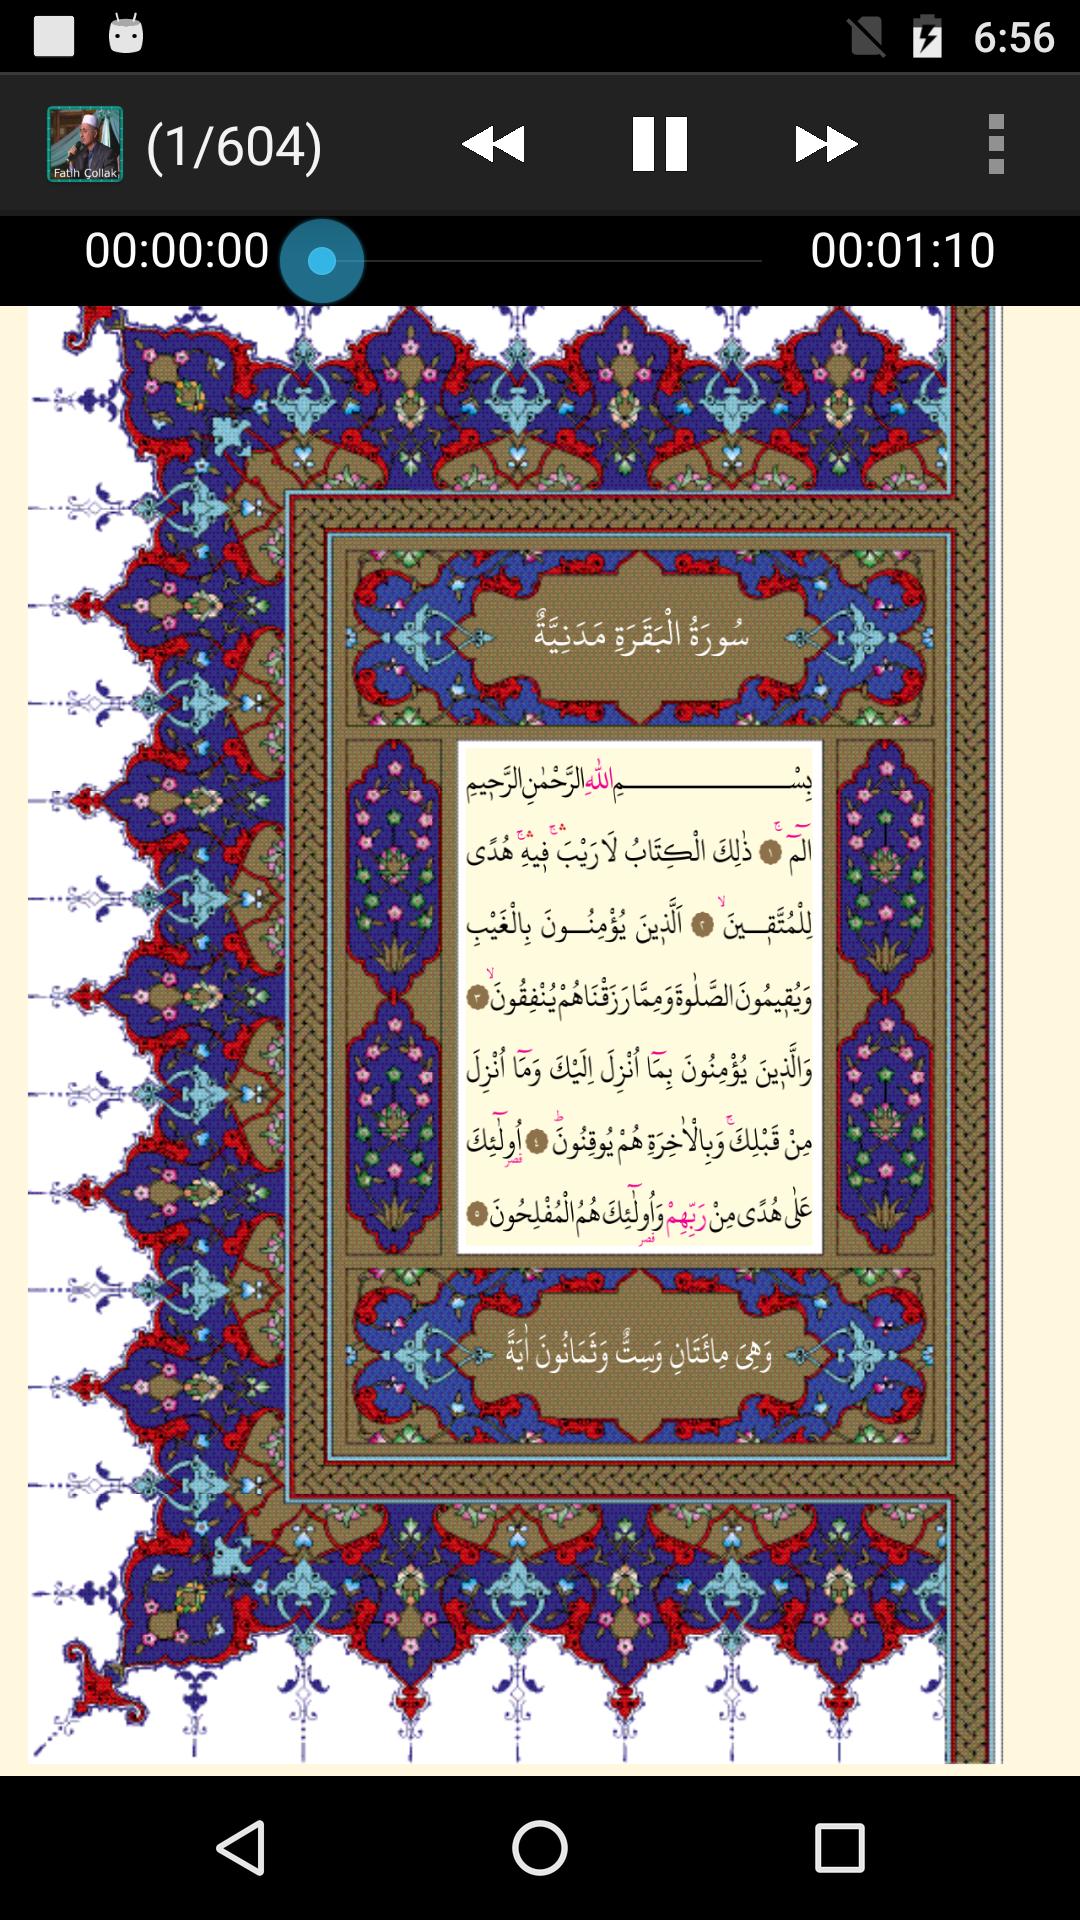 6:56
Fatih Çollak
(1/604)
00:00:00
00:01:10
سُورَةُ الْبَقَرَةِ مَدَنِيَّةٌ
بِسْمِ اللّٰهِ الرَّحْمٰنِ الرَّح۪يمِ
الٓمٓ ۚ ﴿١﴾ ذٰلِكَ الْكِتَابُ لَا رَيْبَ ۛۚ ف۪يهِ ۛۚ هُدًى
لِلْمُتَّق۪ينَ ۙ ﴿٢﴾ اَلَّذ۪ينَ يُؤْمِنُونَ بِالْغَيْبِ
وَيُق۪يمُونَ الصَّلٰوةَ وَمِمَّا رَزَقْنَاهُمْ يُنْفِقُونَ ۙ ﴿٣﴾
وَالَّذ۪ينَ يُؤْمِنُونَ بِمَٓا اُنْزِلَ اِلَيْكَ وَمَٓا اُنْزِلَ
مِنْ قَبْلِكَ ۚ وَبِالْاٰخِرَةِ هُمْ يُوقِنُونَ ۜ ﴿٤﴾ اُولٰٓئِكَ
قصر
عَلٰى هُدًى مِنْ رَبِّهِمْ وَاُولٰٓئِكَ هُمُ الْمُفْلِحُونَ ﴿٥﴾
قصر
وَهِيَ مِائَتَانِ وَسِتٌّ وَثَمَانُونَ اٰيَةً